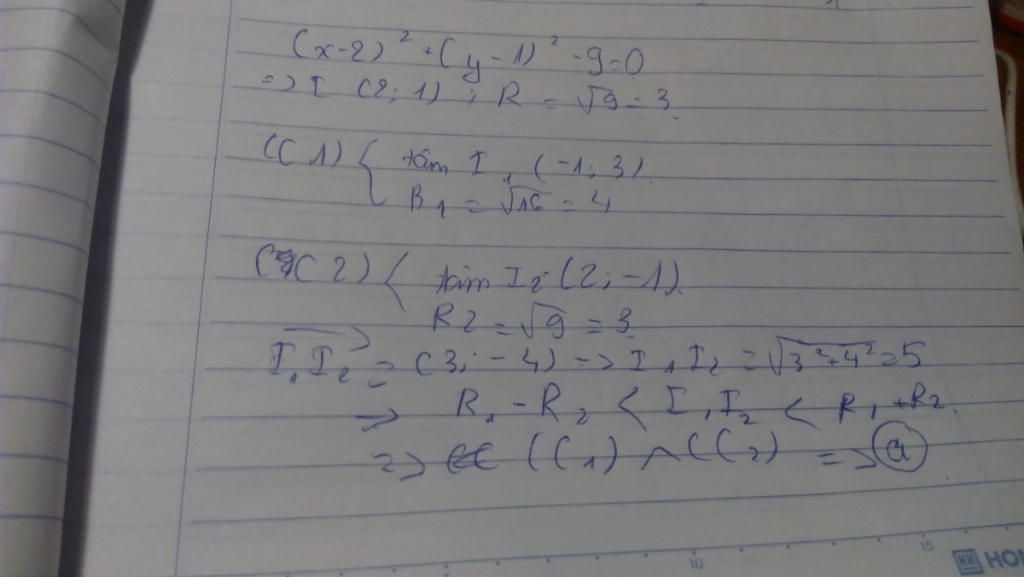 (x-2)² + (y-1)² - 9 = 0
=> I (2; 1) ; R = √9 = 3
(C1) { tâm I₁ (-1; 3)
R₁ = √16 = 4
(C2) { tâm I₂ (2; -1)
R2 = √9 = 3
I₁I₂ = (3; -4) => I₁I₂ = √3²+4² = 5
=> R₁ - R₂ < I₁I₂ < R₁ + R₂
=> (C₁) ∩ (C₂) => a
10
15
HON